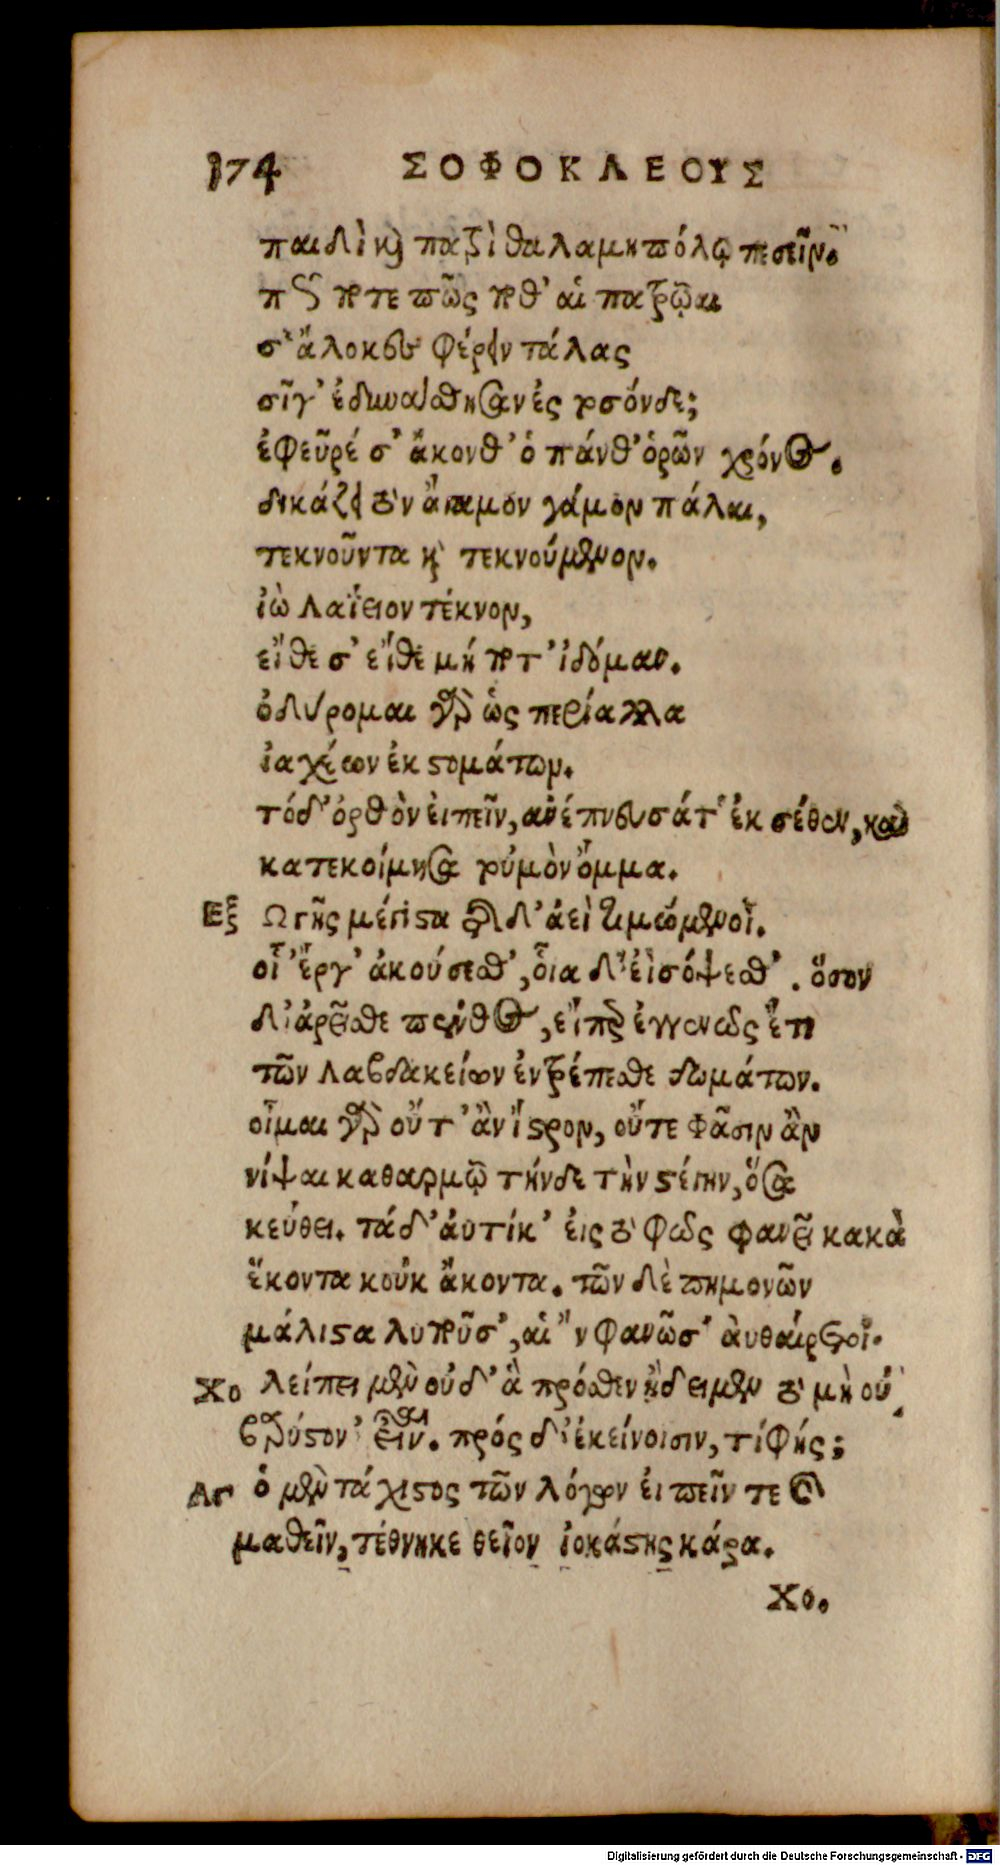 174 ΣΟΦΟΚΛΕΟΥΣ
παιδὶ καὶ πατρὶ θαλαμηπόλῳ πεσεῖν.
πῶς ποτε πῶς ποθ' αἱ πατρῷαι
σ' ἄλοκες φέρειν τάλας
σῖγ' ἐδυνάθησαν ἐς τοσόνδε;
ἐφεῦρέ σ' ἄκονθ' ὁ πάνθ' ὁρῶν χρόνος.
δικάζει τὸν ἄγαμον γάμον πάλαι,
τεκνοῦντα καὶ τεκνούμενον.
ἰὼ λαΐειον τέκνον,
εἴθε σ' εἴθε μήποτ' ἰδόμαν.
ὀδύρομαι γὰρ ὡς περίαλλα
ἰαχέων ἐκ στομάτων.
τόδ' ὀρθὸν εἰπεῖν, ἀνέπνευσάτ' ἐκ σέθεν, καὶ
κατεκοίμησα τοὐμὸν ὄμμα.
Εξ Ω γῆς μέγιστα τῆσδ' ἀεὶ τιμώμενοι.
οἷ' ἔργ' ἀκούσεσθ', οἷα δ' εἰσόψεσθ'. ὅσον
δ' ἀρεῖσθε πένθος, εἴπερ ἐγγενῶς ἔτι
τῶν λαβδακείων ἐντρέπεσθε δωμάτων.
οἶμαι γὰρ οὔτ' ἂν ἴστρον, οὔτε φᾶσιν ἂν
νίψαι καθαρμῷ τήνδε τὴν στέγην, ὅσα
κεύθει. τάδ' ἀυτίκ' εἰς τὸ φῶς φανεῖ κακὰ
ἕκοντα κοὐκ ἄκοντα. τῶν δὲ πημονῶν
μάλιστα λυποῦσ', αἳ 'ν φανῶσ' ἀυθαίρετοι.
Χο λείπει μὲν οὐδ' ἃ πρόσθεν ᾔδειμεν τὸ μὴ οὐ
βαρύστον' εἶναι. πρός δ' ἐκείνοισιν, τί φής;
Αγ ὁ μὲν τάχιστος τῶν λόγων εἰπεῖν τε καὶ
μαθεῖν, τέθνηκε θεῖον ἰοκάστης κάρα.
Χο.
Digitalisierung gefördert durch die Deutsche Forschungsgemeinschaft - DFG